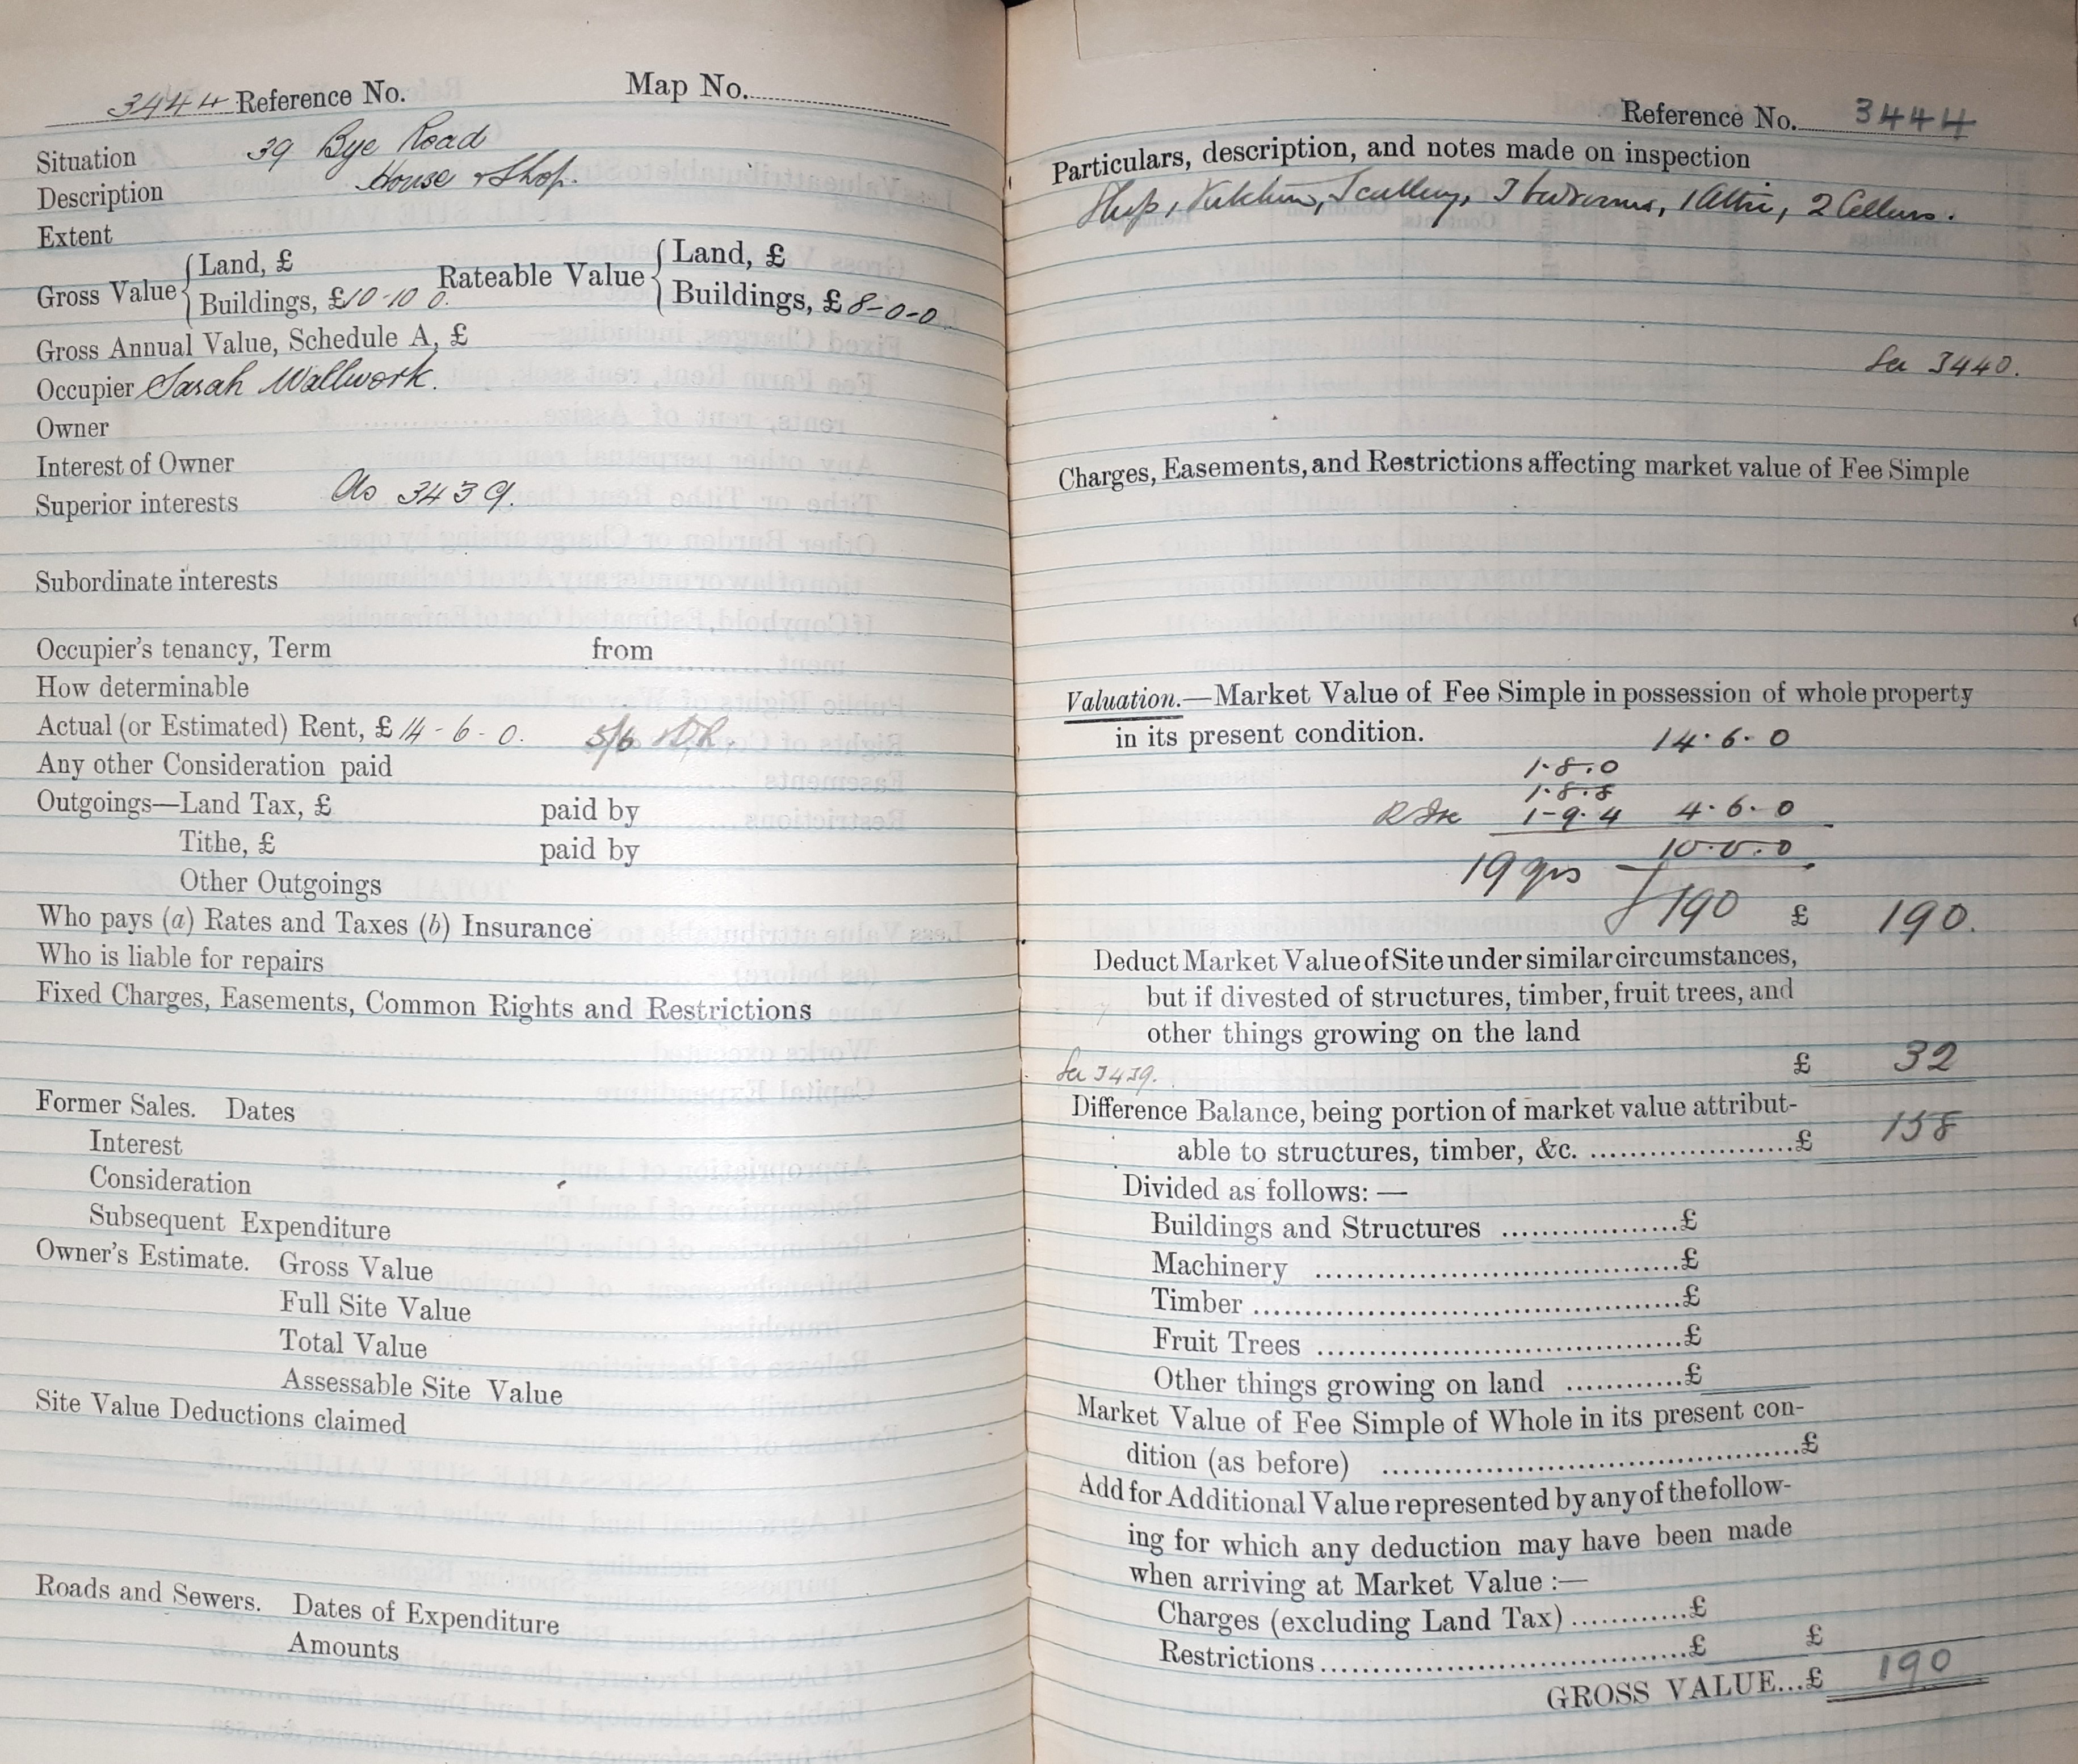 3444 Reference No. Map No.
Situation 39 Bye Road
Description House & Shop.
Extent
Gross Value { Land, £ Rateable Value { Land, £
Buildings, £10-10 0. Buildings, £ 8-0-0
Gross Annual Value, Schedule A, £
Occupier Sarah Wallwork.
Owner
Interest of Owner
Superior interests As 3439.
Subordinate interests
Occupier's tenancy, Term from
How determinable
Actual (or Estimated) Rent, £ 14-6-0. 5/6
Any other Consideration paid
Outgoings—Land Tax, £ paid by
Tithe, £ paid by
Other Outgoings
Who pays (a) Rates and Taxes (b) Insurance
Who is liable for repairs
Fixed Charges, Easements, Common Rights and Restrictions
Former Sales. Dates
Interest
Consideration
Subsequent Expenditure
Owner's Estimate. Gross Value
Full Site Value
Total Value
Assessable Site Value
Site Value Deductions claimed
Roads and Sewers. Dates of Expenditure
Amounts
Reference No. 3444
Particulars, description, and notes made on inspection
Shop, Kitchen, Scullery, 3 bedrooms, 1 Attic, 2 Cellars.
See 3440.
Charges, Easements, and Restrictions affecting market value of Fee Simple
Valuation.—Market Value of Fee Simple in possession of whole property
in its present condition. 14.6.0
1.8.0
1.8.8
1-9.4 4.6.0
10.0.0
19 yrs £190 £ 190.
Deduct Market Value of Site under similar circumstances,
but if divested of structures, timber, fruit trees, and
other things growing on the land
See 3439. £ 32
Difference Balance, being portion of market value attribut-
able to structures, timber, &c. ....................£ 158
Divided as follows: —
Buildings and Structures .................£
Machinery ...................................£
Timber .........................................£
Fruit Trees ...................................£
Other things growing on land ............£
Market Value of Fee Simple of Whole in its present con-
dition (as before) .........................................£
Add for Additional Value represented by any of the follow-
ing for which any deduction may have been made
when arriving at Market Value :—
Charges (excluding Land Tax) ...........£
Restrictions....................................£ £
GROSS VALUE...£ 190